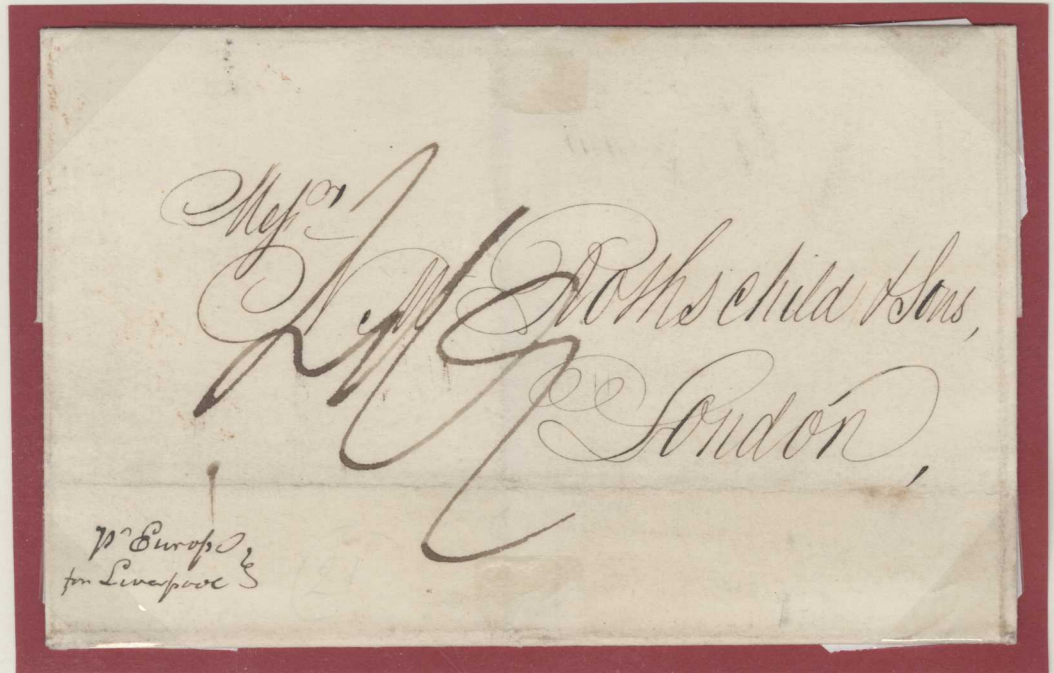 Messrs
N M Rothschild & Sons,
London,
pr Europe
for Liverpool